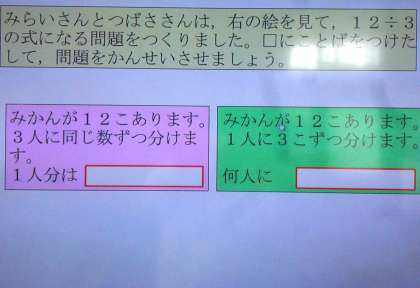 みらいさんとつばささんは，右の絵を見て，１２÷３
の式になる問題をつくりました。□にことばをつけた
して，問題をかんせいさせましょう。
みかんが１２こあります。
３人に同じ数ずつ分けま
す。
１人分は
みかんが１２こあります。
１人に３こずつ分けます。
何人に